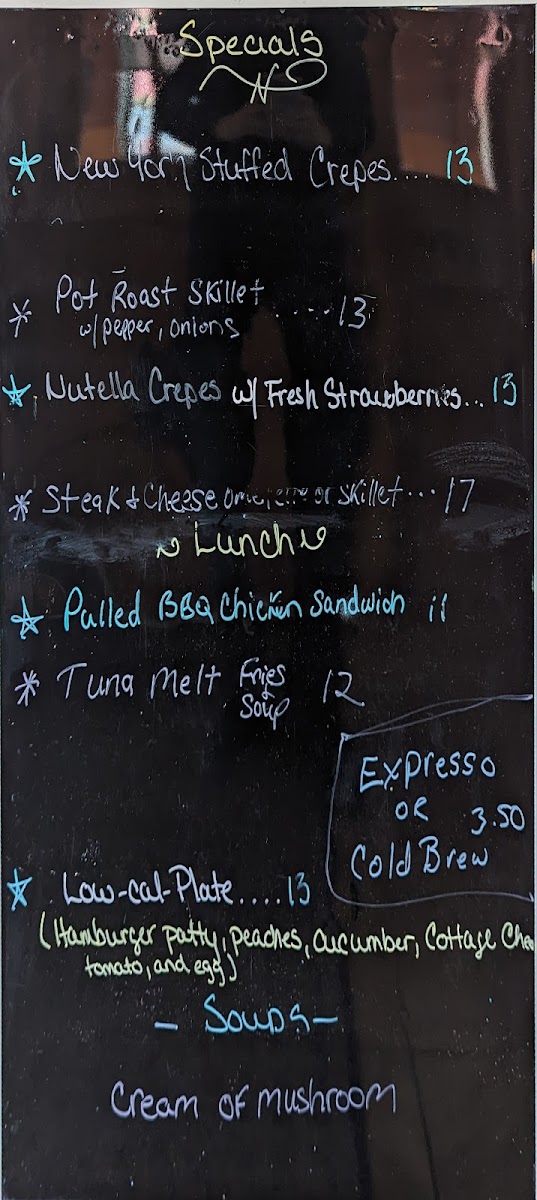 Specials
New York Stuffed Crepes.... 13
Pot Roast Skillet ..... 13
w/pepper, onions
Nutella Crepes w/ Fresh Strawberries... 13
Steak & Cheese omelette or skillet... 17
Lunch
Pulled BBQ Chicken Sandwich 11
Tuna Melt Fries 12
Soup
Expresso
OR 3.50
Cold Brew
Low-cal-Plate.....13
(Hamburger patty, peaches, cucumber, Cottage Chee
tomato, and egg)
- Soups -
Cream of mushroom